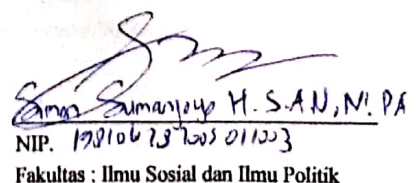 Simon Sumanjoyo H. S.A.N, M.PA
NIP. 198106282005011003
Fakultas : Ilmu Sosial dan Ilmu Politik